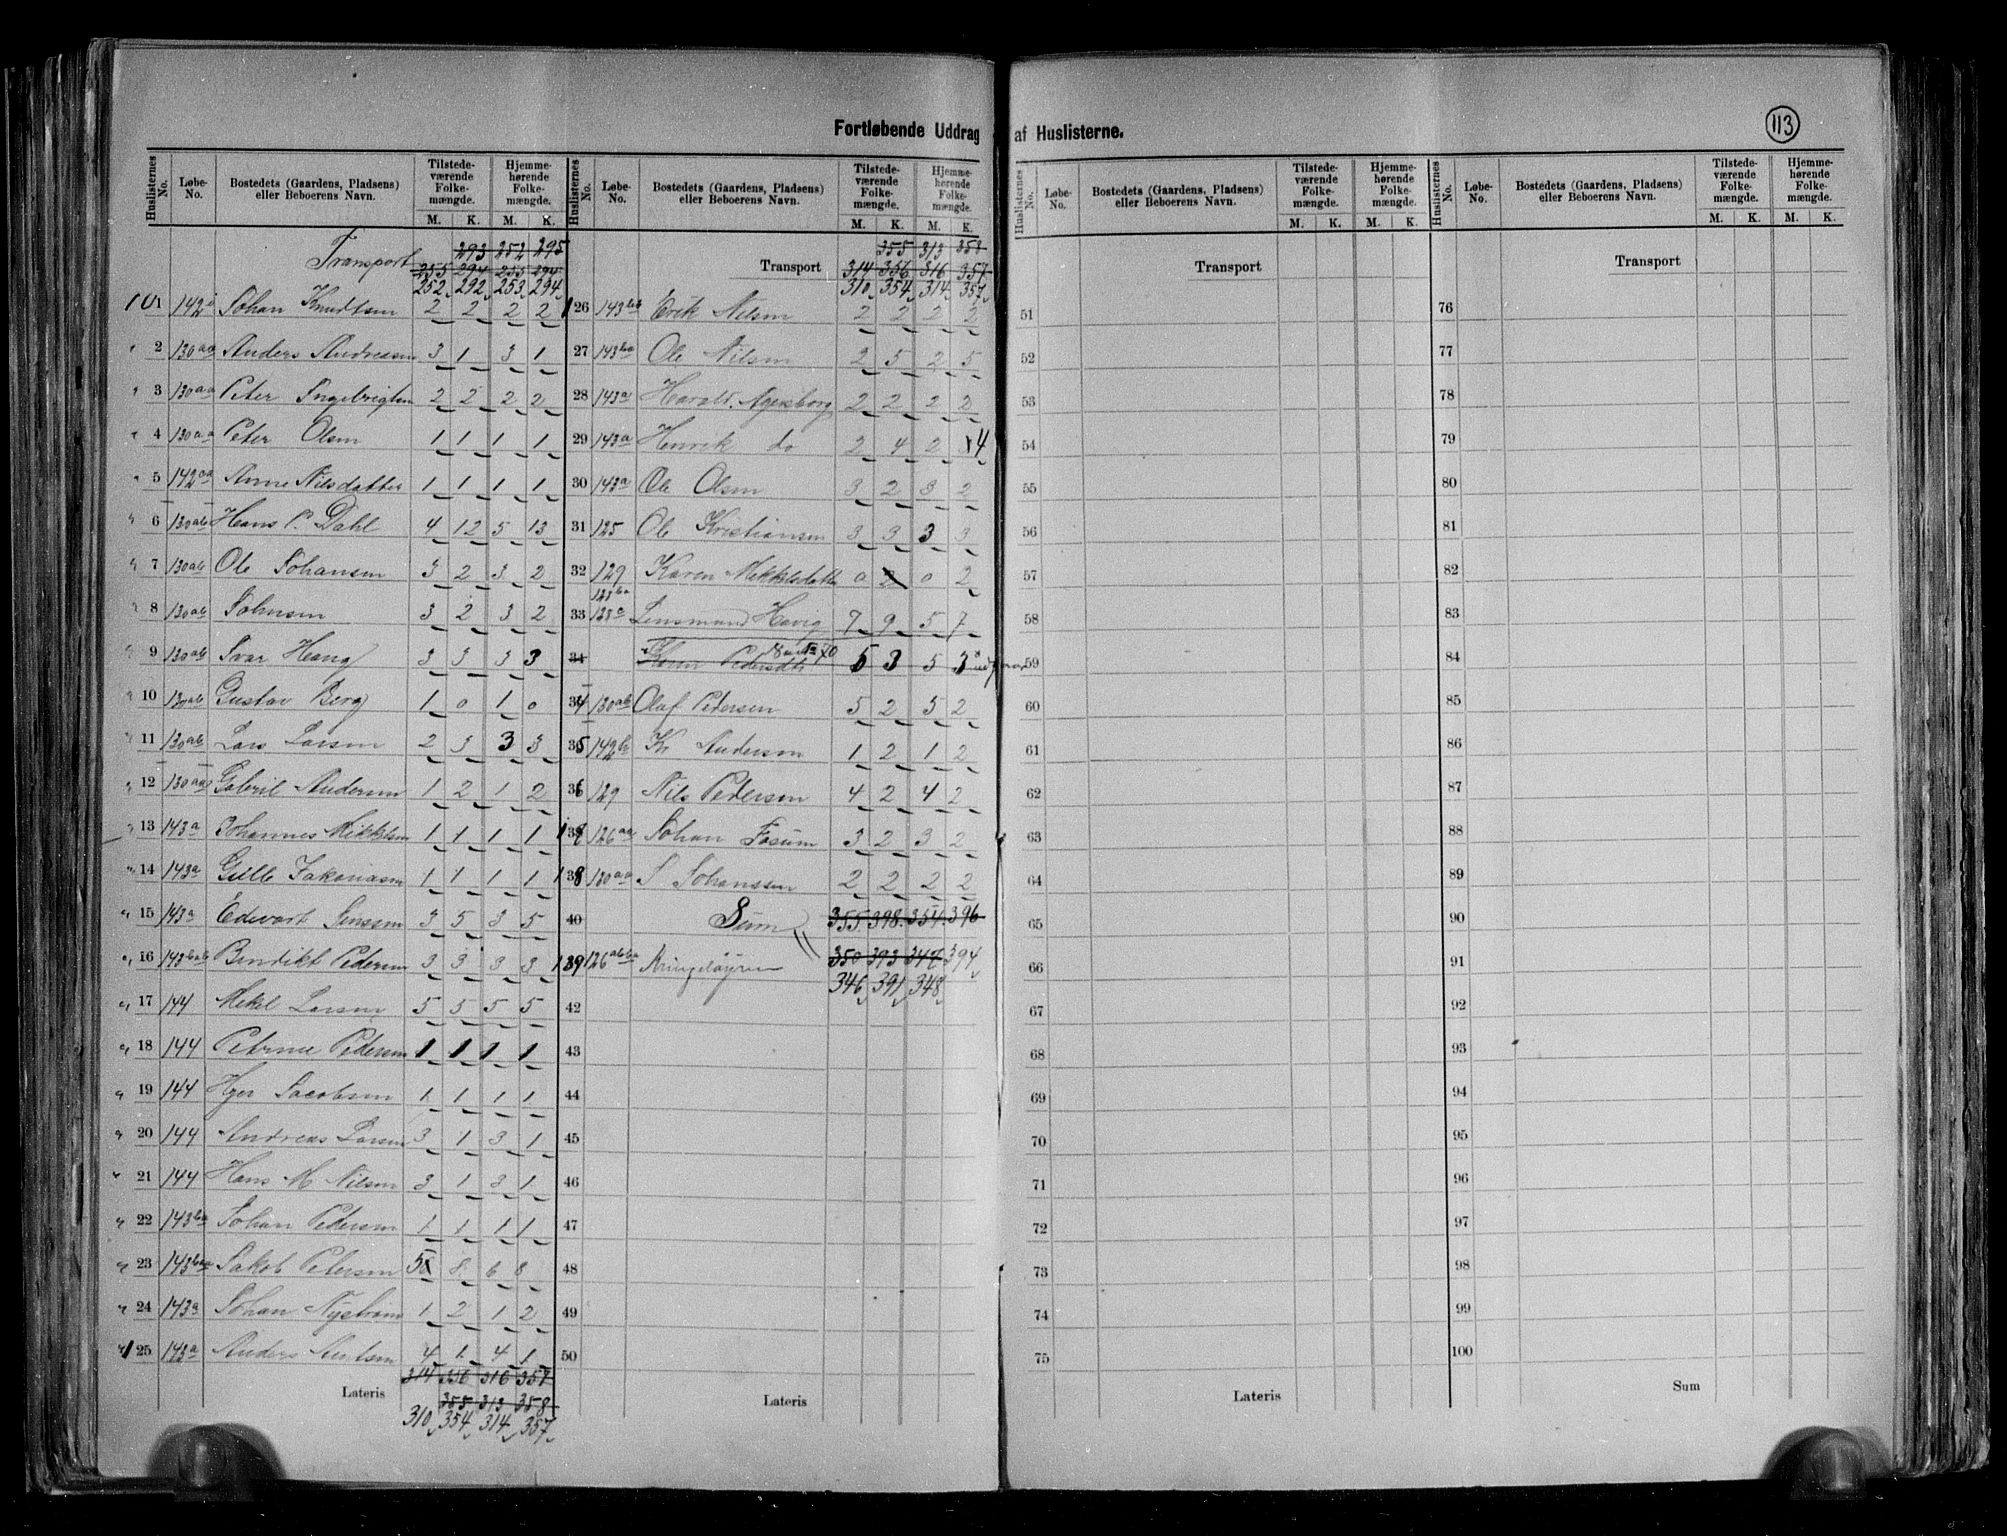 Fortløbende Uddrag af Huslisterne.
113
Huslisternes No. Løbe-No. Bostedets (Gaardens, Pladsens) eller Beboerens Navn. Tilstedeværende Folkemængde. M. K. Hjemmehørende Folkemængde. M. K.
293 252 295
Transport 255 294 255 294
252 292 253 294
101 142 Johan Knudtsen 2 2 2 2
2 130aa Anders Andreasen 3 1 3 1
3 130aa Peter Ingebrigtsen 2 2 2 2
4 130aa Peter Olsen 1 1 1 1
5 142aa Anne Nilsdatter 1 1 1 1
6 130ab Hans P. Dahl 4 12 5 13
7 130ab Ole Johansen 3 2 3 2
8 130ab Johnsen 3 2 3 2
9 130ab Ivar Haug 3 3 3 3
10 130ab Gustav Berg 1 0 1 0
11 130ab Lars Larsen 2 3 3 3
12 130aa Gabriel Andersen 1 2 1 2
13 143a Johannes Mikkelsen 1 1 1 1
14 143a Gille Zakariasen 1 1 1 1
15 143a Edevart Jenssen 3 5 3 5
16 143bab Bendikt Pedersen 3 3 3 3
17 144 Mikl Larsen 5 5 5 5
18 144 Petrine Pedersen 1 1 1 1
19 144 Hger Jacobsen 1 1 1 1
20 144 Andreas Larsen 3 1 3 1
21 144 Hans M Nilsen 3 1 3 1
22 143ba Johan Pedersen 1 1 1 1
23 143ba Jakob Petersen 5 8 6 8
24 143a Johan Nystrøm 1 2 1 2
25 143a Anders Antsen 4 1 4 1
314 356 316 357
Lateris 355 313 358
310 354 314 357
Huslisternes No. Løbe-No. Bostedets (Gaardens, Pladsens) eller Beboerens Navn. Tilstedeværende Folkemængde. M. K. Hjemmehørende Folkemængde. M. K.
355 313 358
Transport 314 356 316 357
310 354 314 357
126 143bb Erik Nilsen 2 2 2 2
27 143ba Ole Nilsen 2 5 2 5
28 143a Haralt. Agersborg 2 2 2 2
29 143a Henrik do 2 4 2 4
30 143a Ole Olsen 3 2 3 2
31 125 Ole Kristiansen 3 3 3 3
32 129 Karen Mikkelsdatt 0 2 0 2
128ba
33 128a Lensmand Havig 7 9 5 7
34 Karen Pedersdtr 5 3 5 3
34 130ab Olaf Pedersen 5 2 5 2
35 142b Kr Andersen 1 2 1 2
36 129 Nils Pedersen 4 2 4 2
126aa Johan Fosum 3 2 3 2
138 130aa J Johanssen 2 2 2 2
40 Sum 355 398 354 396
139 126abba 350 393 347 394
346 391 348
42
43
44
45
46
47
48
49
50
Lateris
Huslisternes No. Løbe-No. Bostedets (Gaardens, Pladsens) eller Beboerens Navn. Tilstedeværende Folkemængde. M. K. Hjemmehørende Folkemængde. M. K.
Transport
51
52
53
54
55
56
57
58
59
60
61
62
63
64
65
66
67
68
69
70
71
72
73
74
75
Lateris
Huslisternes No. Løbe-No. Bostedets (Gaardens, Pladsens) eller Beboerens Navn. Tilstedeværende Folkemængde. M. K. Hjemmehørende Folkemængde. M. K.
Transport
76
77
78
79
80
81
82
83
84
85
86
87
88
89
90
91
92
93
94
95
96
97
98
99
100
Sum